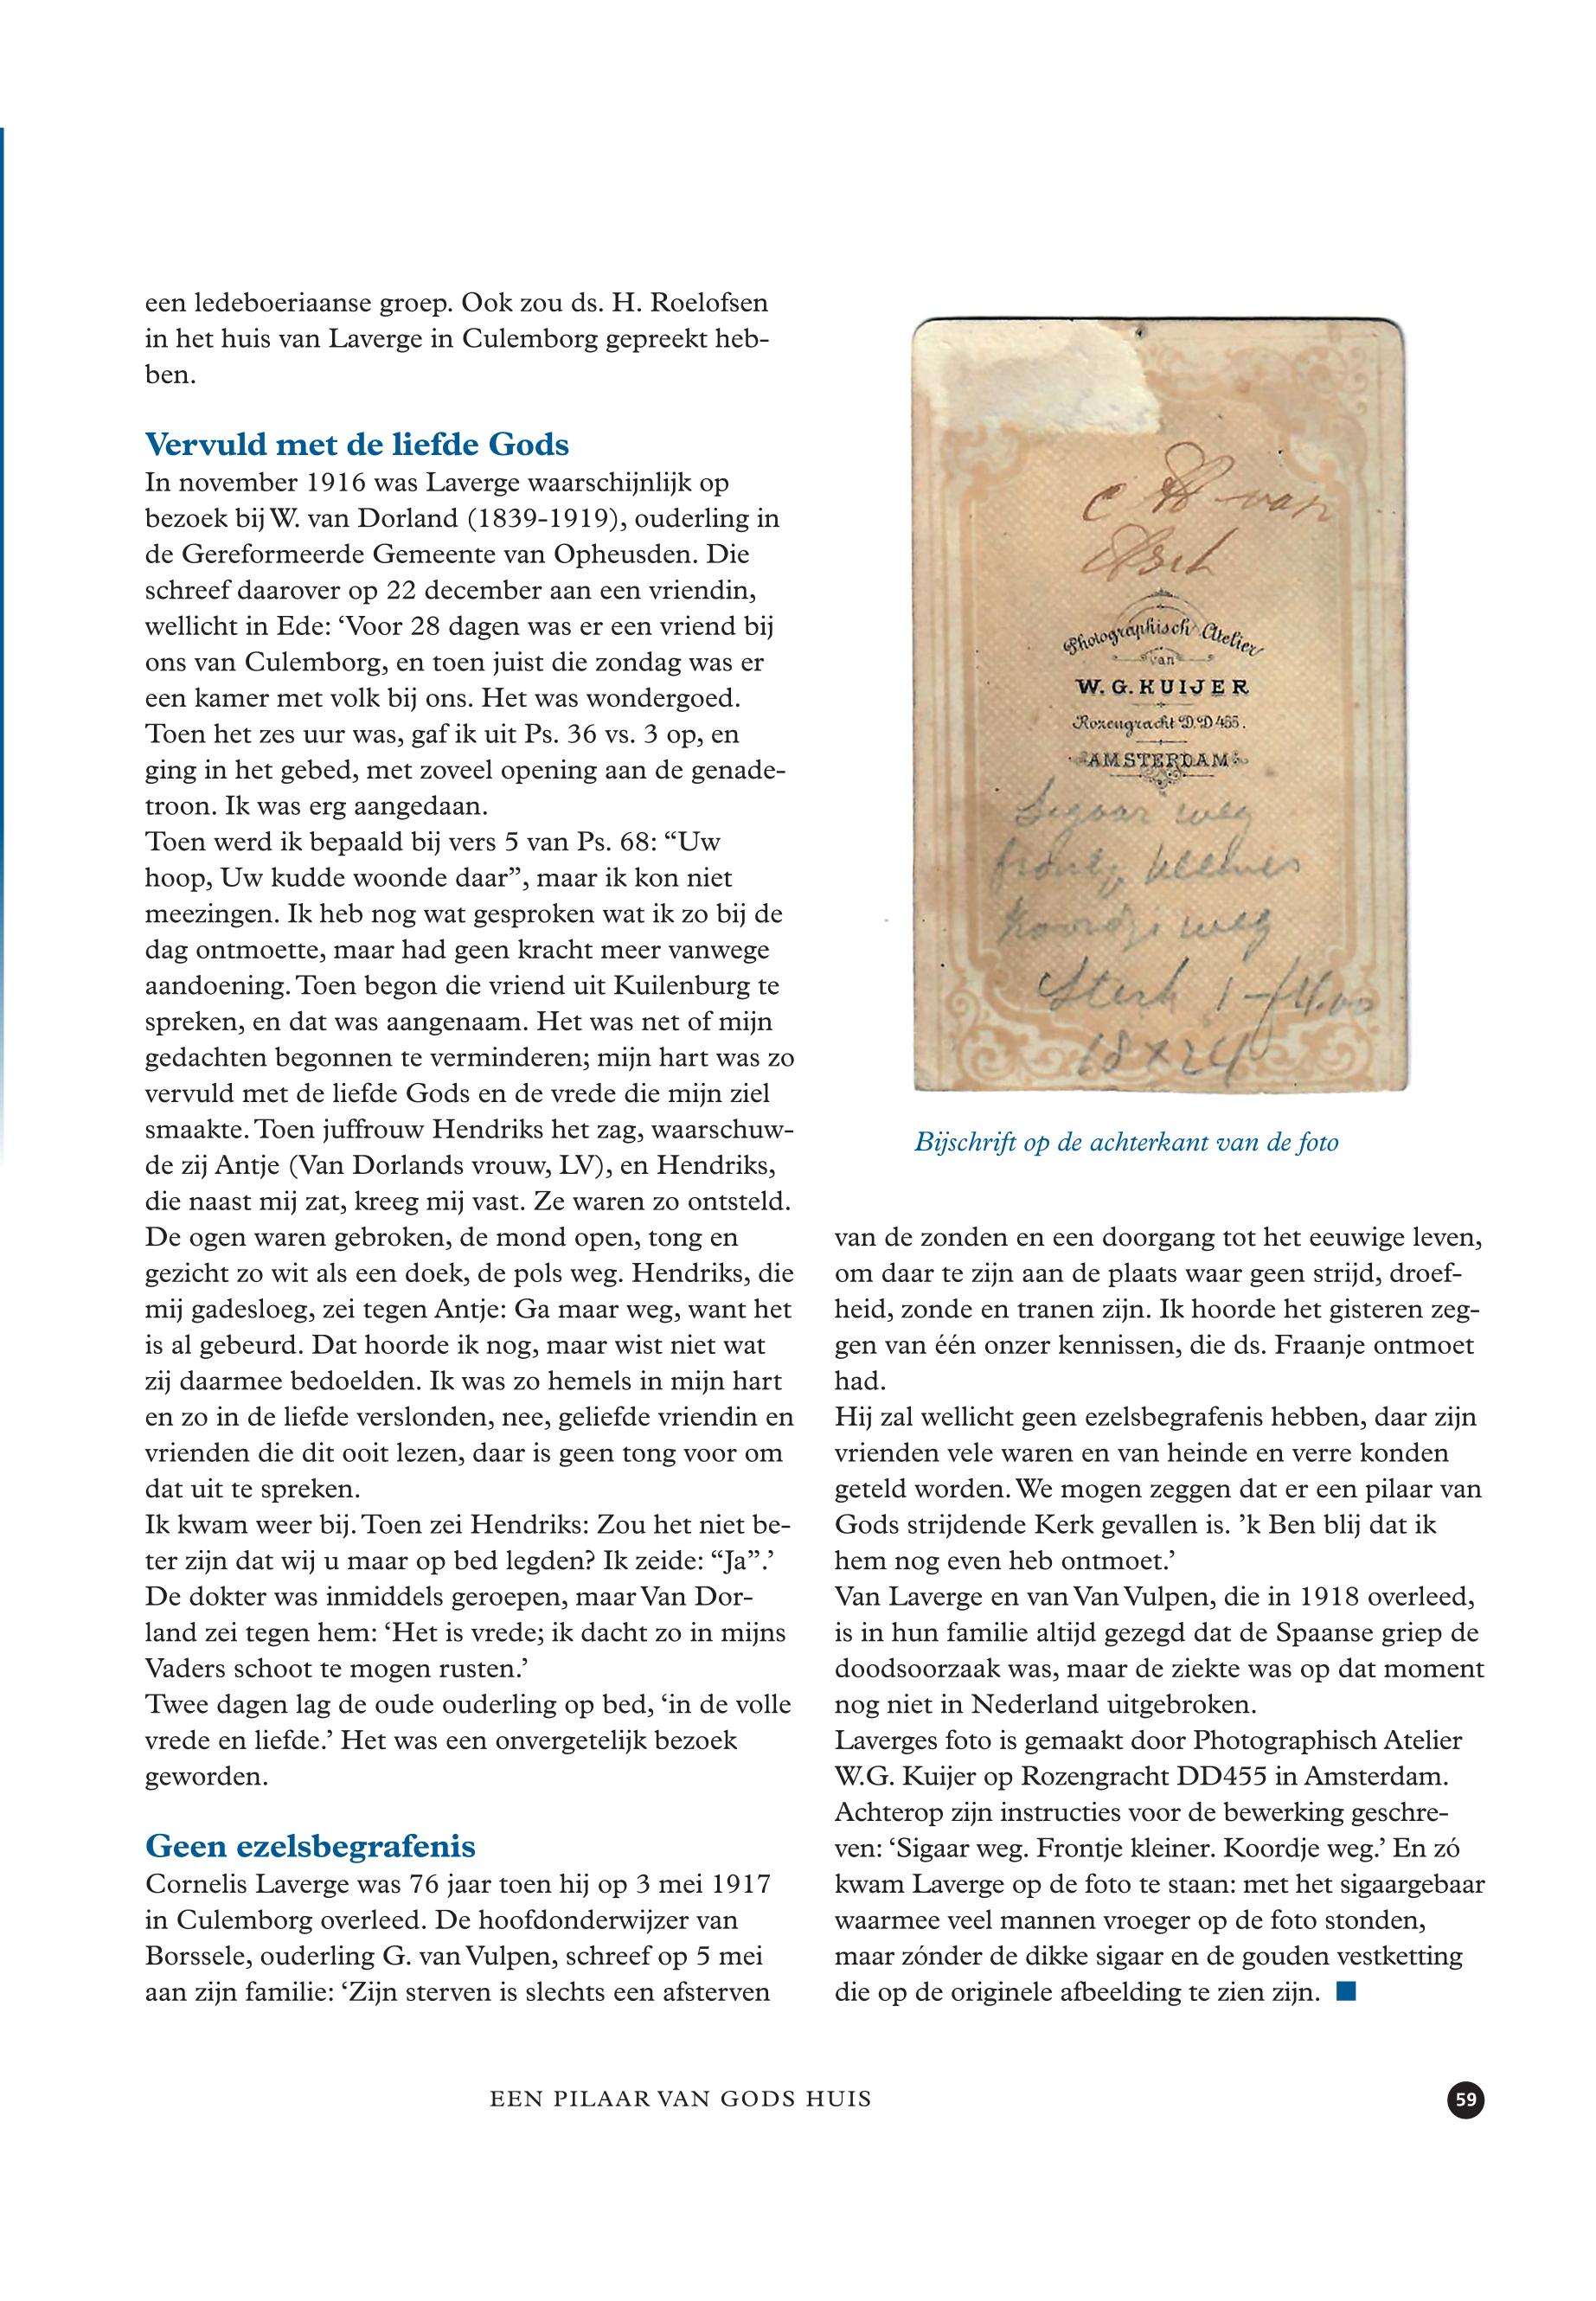 een ledeboeriaanse groep. Ook zou ds. H. Roelofsen
in het huis van Laverge in Culemborg gepreekt heb-
ben.
Vervuld met de liefde Gods
In november 1916 was Laverge waarschijnlijk op
bezoek bij W. van Dorland (1839-1919), ouderling in
de Gereformeerde Gemeente van Opheusden. Die
schreef daarover op 22 december aan een vriendin,
wellicht in Ede: ‘Voor 28 dagen was er een vriend bij
ons van Culemborg, en toen juist die zondag was er
een kamer met volk bij ons. Het was wondergoed.
Toen het zes uur was, gaf ik uit Ps. 36 vs. 3 op, en
ging in het gebed, met zoveel opening aan de genade-
troon. Ik was erg aangedaan.
Toen werd ik bepaald bij vers 5 van Ps. 68: “Uw
hoop, Uw kudde woonde daar”, maar ik kon niet
meezingen. Ik heb nog wat gesproken wat ik zo bij de
dag ontmoette, maar had geen kracht meer vanwege
aandoening. Toen begon die vriend uit Kuilenburg te
spreken, en dat was aangenaam. Het was net of mijn
gedachten begonnen te verminderen; mijn hart was zo
vervuld met de liefde Gods en de vrede die mijn ziel
smaakte. Toen juffrouw Hendriks het zag, waarschuw-
de zij Antje (Van Dorlands vrouw, LV), en Hendriks,
die naast mij zat, kreeg mij vast. Ze waren zo ontsteld.
De ogen waren gebroken, de mond open, tong en
gezicht zo wit als een doek, de pols weg. Hendriks, die
mij gadesloeg, zei tegen Antje: Ga maar weg, want het
is al gebeurd. Dat hoorde ik nog, maar wist niet wat
zij daarmee bedoelden. Ik was zo hemels in mijn hart
en zo in de liefde verslonden, nee, geliefde vriendin en
vrienden die dit ooit lezen, daar is geen tong voor om
dat uit te spreken.
Ik kwam weer bij. Toen zei Hendriks: Zou het niet be-
ter zijn dat wij u maar op bed legden? Ik zeide: “Ja”.’
De dokter was inmiddels geroepen, maar Van Dor-
land zei tegen hem: ‘Het is vrede; ik dacht zo in mijns
Vaders schoot te mogen rusten.’
Twee dagen lag de oude ouderling op bed, ‘in de volle
vrede en liefde.’ Het was een onvergetelijk bezoek
geworden.
Geen ezelsbegrafenis
Cornelis Laverge was 76 jaar toen hij op 3 mei 1917
in Culemborg overleed. De hoofdonderwijzer van
Borssele, ouderling G. van Vulpen, schreef op 5 mei
aan zijn familie: ‘Zijn sterven is slechts een afsterven
van
Asch
Photographisch Atelier
van
W. G. KUIJER
Rozengracht DD 455.
AMSTERDAM
Sigaar weg
frontje kleiner
koordje weg
Sterk 1
18 x 24
Bijschrift op de achterkant van de foto
van de zonden en een doorgang tot het eeuwige leven,
om daar te zijn aan de plaats waar geen strijd, droef-
heid, zonde en tranen zijn. Ik hoorde het gisteren zeg-
gen van één onzer kennissen, die ds. Fraanje ontmoet
had.
Hij zal wellicht geen ezelsbegrafenis hebben, daar zijn
vrienden vele waren en van heinde en verre konden
geteld worden. We mogen zeggen dat er een pilaar van
Gods strijdende Kerk gevallen is. ’k Ben blij dat ik
hem nog even heb ontmoet.’
Van Laverge en van Van Vulpen, die in 1918 overleed,
is in hun familie altijd gezegd dat de Spaanse griep de
doodsoorzaak was, maar de ziekte was op dat moment
nog niet in Nederland uitgebroken.
Laverges foto is gemaakt door Photographisch Atelier
W.G. Kuijer op Rozengracht DD455 in Amsterdam.
Achterop zijn instructies voor de bewerking geschre-
ven: ‘Sigaar weg. Frontje kleiner. Koordje weg.’ En zó
kwam Laverge op de foto te staan: met het sigaargebaar
waarmee veel mannen vroeger op de foto stonden,
maar zónder de dikke sigaar en de gouden vestketting
die op de originele afbeelding te zien zijn.
EEN PILAAR VAN GODS HUIS
59